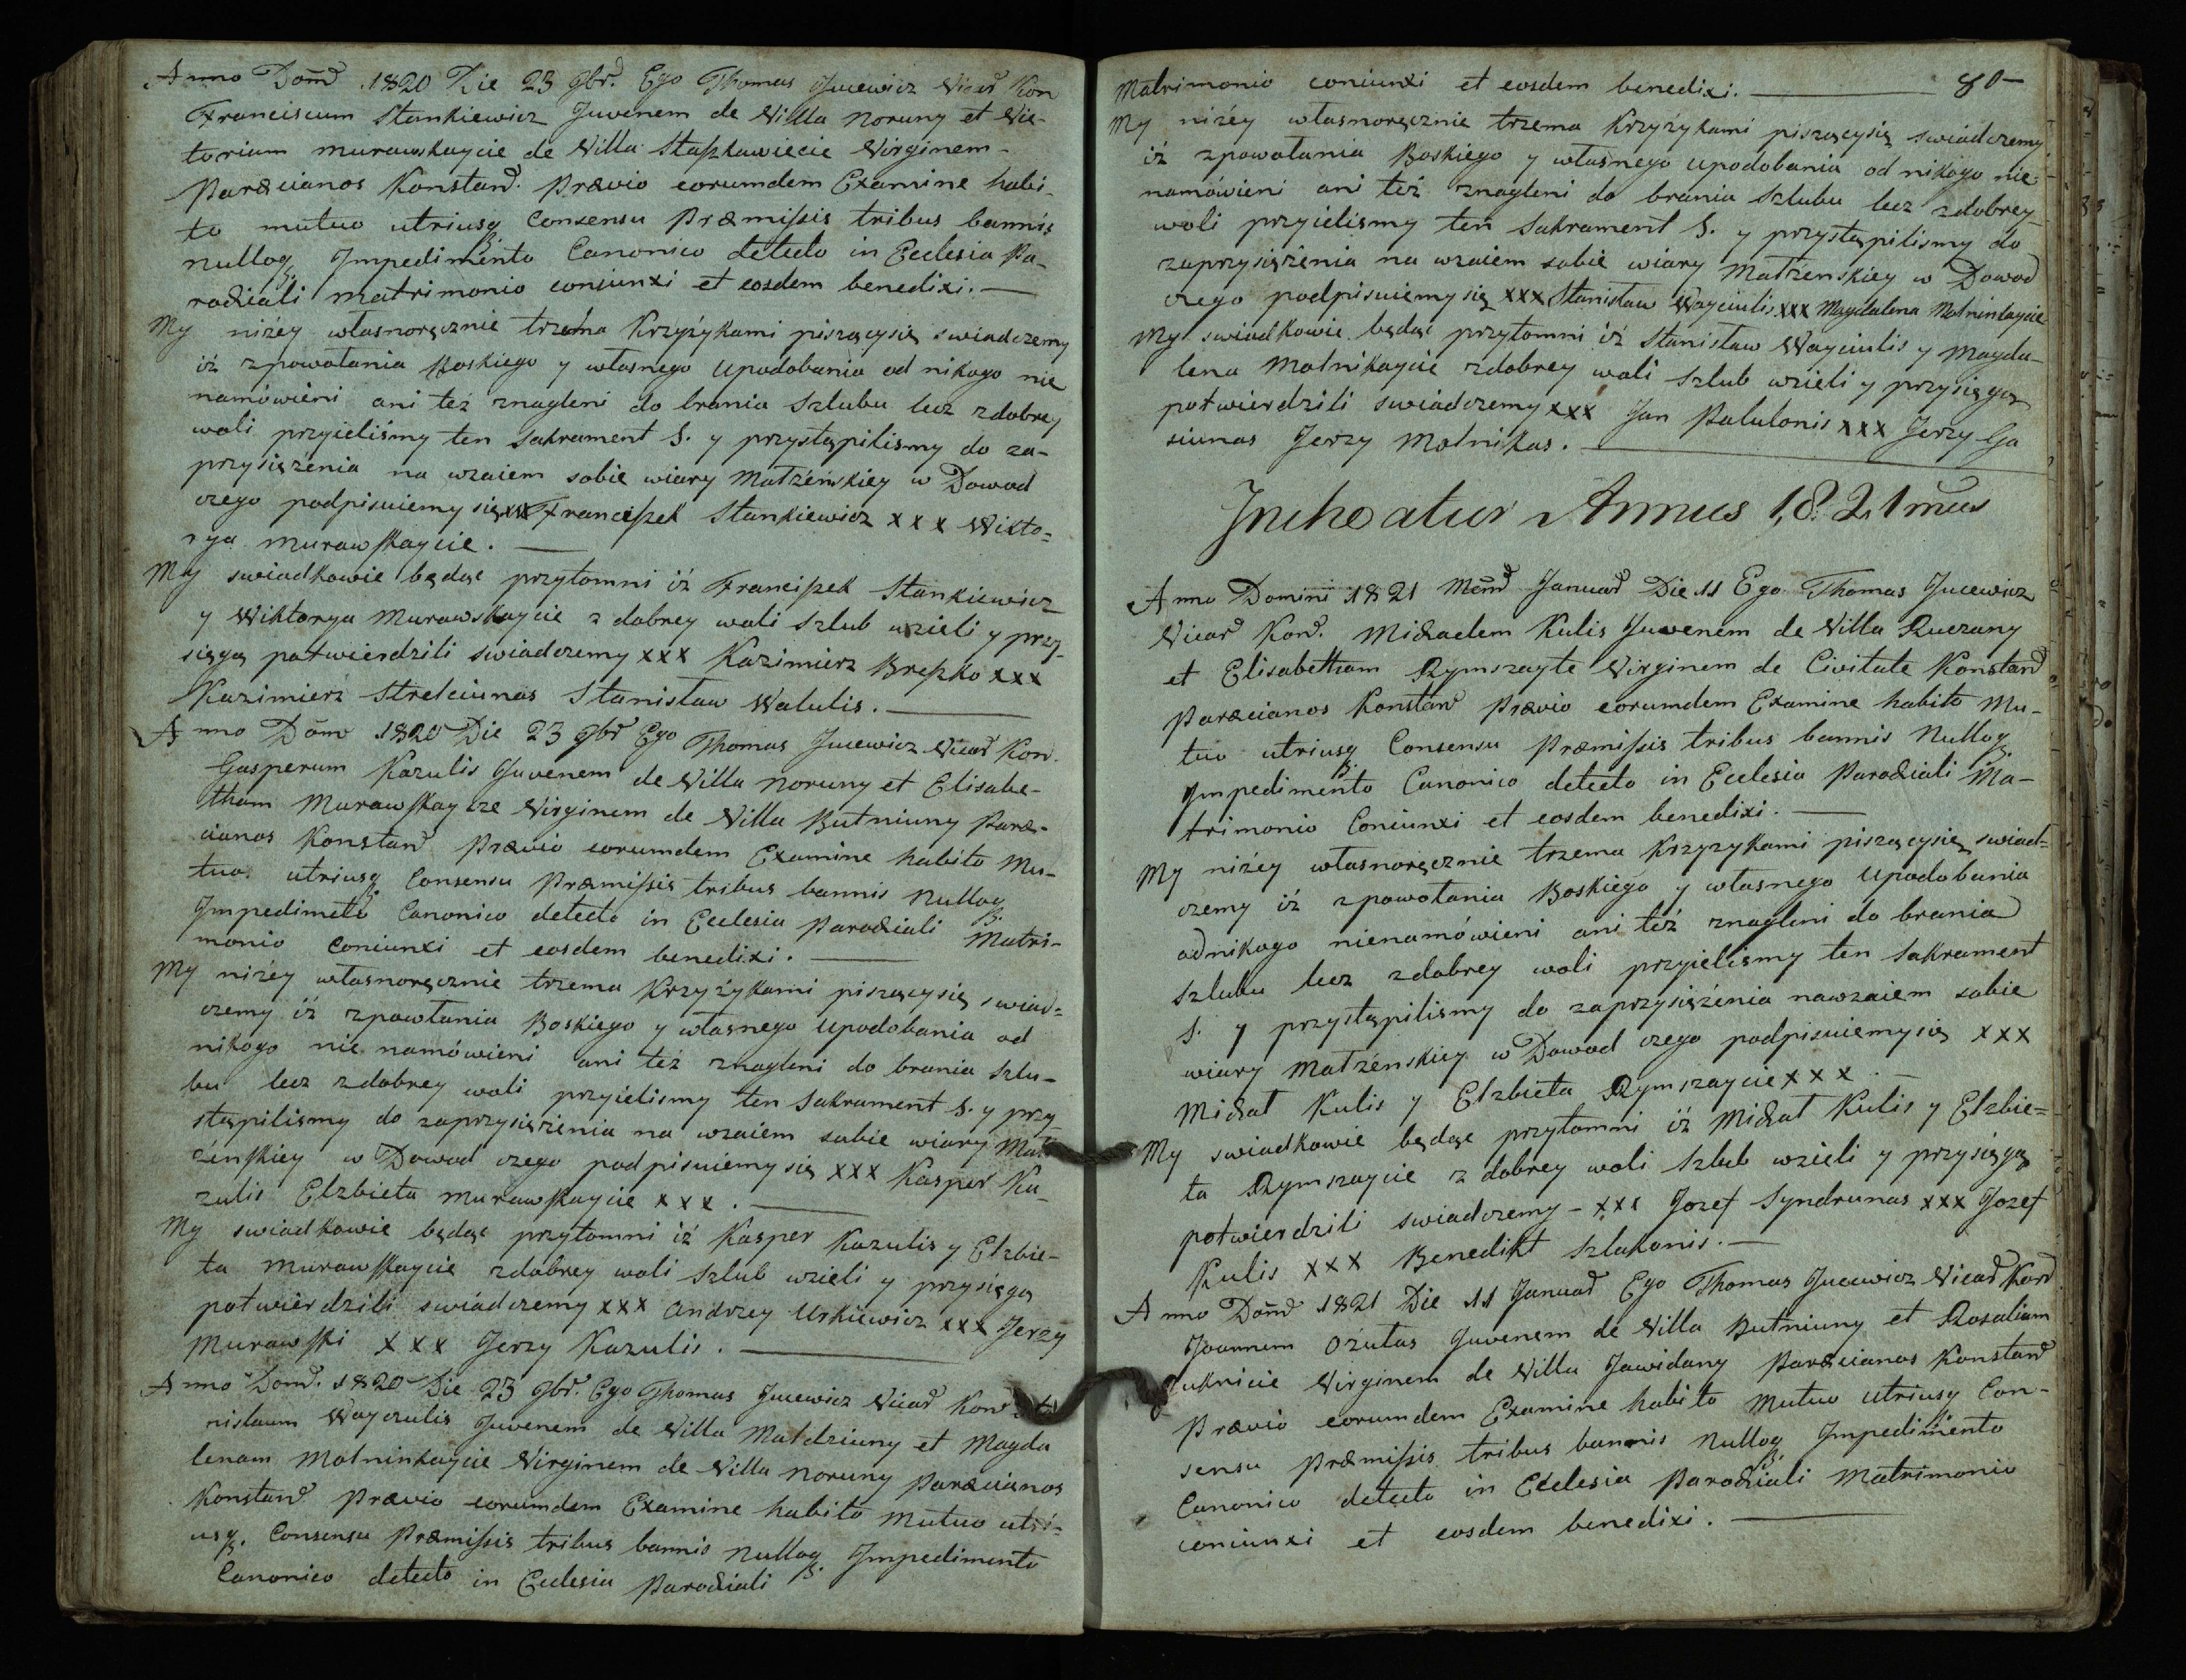 Anno Dom̄d 1820 Die 23 9br̄. Ego Thomas Jucewicz Vicar̄ Kon
Franciscum Stankiewicz Juvenem de Villa Noruny et Vic-
toriam Murawskaycie de Villa Staszkawiecie Virginem-
Paræcianos Konstanḋ. Prævio eorumdem Examine habi-
to mutuo utriusq. Consensu Præmissis tribus bannis
nulloq. Impedimento Canonico detecto in Ecclesia Pa-
rochiali matrimonio coniunxi et eosdem benedixi. —
My niżey własnoręcznie trzema Krzyżykami piszącysię swiadczemy
iż zpowołania Boskiego y własnego Upodobania od nikogo nie
namówieni ani też znagleni do brania Szlubu lecz zdobrey
woli przyieliśmy ten Sakrament S. y przystąpilismy do za-
przysiężenia na wzaiem sobie wiary Małżeńskiey w Dowod
czego podpisuiemy się xxx Franciszek Stankiewicz xxx Wikto=
rya Murawskaycie. —
My swiadkowie będąc przytomni iż Franciszek Stankiewicz
y Wiktorya Murawskaycie z dobrey woli Szlub wzieli y przy-
sięgą potwierdzili swiadczemy xxx Kazimierz Breszko xxx
Kazimierz Strelciunas Stanisław Walulis. —
Anno Dōm 1820 Die 23 9br̄ Ego Thomas Jucewicz Vicar̄ Kon.
Gasperum Kazulis Juvenem de Villa Noruny et Elisabe-
tham Murawskaycze Virginem de Villa Butniuny Paræ-
cianos Konstand̄ Prævio eorumdem Examine habito Mu-
tuo utriusq. Consensu Præmissis tribus bannis Nulloq.
Impedimeto Canonico detecto in Ecclesia Parochiali Matri-
monio coniunxi et eosdem benedixi. —
My niżey własnoręcznie trzema Krzyżykami piszącysię swiad=
czemy iż zpowłania Boskiego y własnego Upodobania od
nikogo nie namówieni ani też znagleni do brania Szlu-
bu lecz zdobrey woli przyielismy ten Sakrament S. y przy-
stąpilismy do zaprzysiężenia na wzaiem sobie wiary Mał
żeńskiey w Dowod czego podpisuiemy się xxx Kasper Ka-
zulis Elzbieta Murawskaycie xxx. —
My swiadkowie będąc przytomni iż Kasper Kazulis y Elzbie-
ta Murawskaycie zdobrey woli Szlub wzieli y przysięgą
potwierdzili swiadczemy xxx Andrzey Urkiewicz xxx Jerzy
Murawski xxx Jerzy Kazulis. —
Anno Dom̄d. 1820 Die 23 9br̄. Ego Thomas Jucewicz Vicar̄ Kon̄d Sta
nislaum Wayczulis Juvenem de Villa Maldziuny et Magda
lenam Molninkaycie Virginem de Villa Noruny Paræcianos
Konstand̄ Prævio eorumdem Examine habito Mutuo utri=
usq. Consensu Præmissis tribus bannis Nulloq. Impedimento
Canonico detecto in Ecclesia Parochiali
80
Matrimonio coniunxi et eosdem benedixi. —
My niżey własnoręcznie trzema Krzyżykami piszącysię swiadczemy
iż zpowołania Boskiego y własnego Upodobania od nikogo nie-
namówieni ani też znagleni do brania Szlubu lecz zdobrey
woli przyielismy ten Sakrament S. y przystąpilismy do
zaprzysiężenia na wzaiem sobie wiary Małżenskiey w Dowod
czego podpisuiemy się xxx Stanisław Wayciulis xxx Magdalena Molninkaycie
My swiadkowie będąc przytomni iż Stanisław Wayciulis y Magda-
lena Molnikaycie zdobrey woli Szlub wzieli y przysięgą
potwierdzili swiadczemy xxx Jan Palulonis xxx Jerzy Ga
siunas Jerzy Molnikas. —
Inchoatur Annus 1821mus
Anno Domini 1821 Men̄d Januar̄ Die 11 Ego Thomas Jucewicz
Vicar̄ Kon̄d. Michaelem Kulis Juvenem de Villa Ruczany
et Elisabetham Rymszayte Virginem de Civitate Konstand̄
Paræcianos Konstand̄ Prævio eorumdem Examine habito Mu-
tuo utriusq. Consensu Præmissis tribus bannis Nulloq.
Impedimento Canonico detecto in Ecclesia Parochiali Ma-
trimonio Coniunxi et eosdem benedixi. —
My niżey własnoręcznie trzema Krzyzykami piszącysię swiad=
czemy iż zpowołania Boskiego y własnego Upodobania
odnikogo nienamówieni ani też znagleni do brania
Szlubu lecz zdobrey woli przyielismy ten Sakrament
S. y przystąpilismy do zaprzysiężenia nawzaiem sobie
wiary Małżenskiey w Dowod czego podpisuiemysię xxx
Michał Kulis y Elzbieta Rymszaycie xxx. —
My swiadkowie będąc przytomni iż Michał Kulis y Elzbie=
ta Rymszaycie z dobrey woli Szlub wzieli y przysięgą
potwierdzili swiadczemy - xxx Jozef Syndrunas xxx Jozef
Kulis xxx Benedikt Szlakonis. —
Anno Dom̄d 1821 Die 11 Januar̄ Ego Thomas Jucewicz Vicar̄ Kon̄d
Joannem Ożutas Juvenem de Villa Butniuny et Rosaliam
Juknicie Virginem de Villa Jawidany Paræcianos Konstand̄
Prævio eorumdem Examine habito Mutuo utriusq Con-
sensu Præmissis tribus bannis Nulloq. Impedimento
Canonico detecto in Ecclesia Parochiali Matrimonio
coniunxi et eosdem benedixi. —